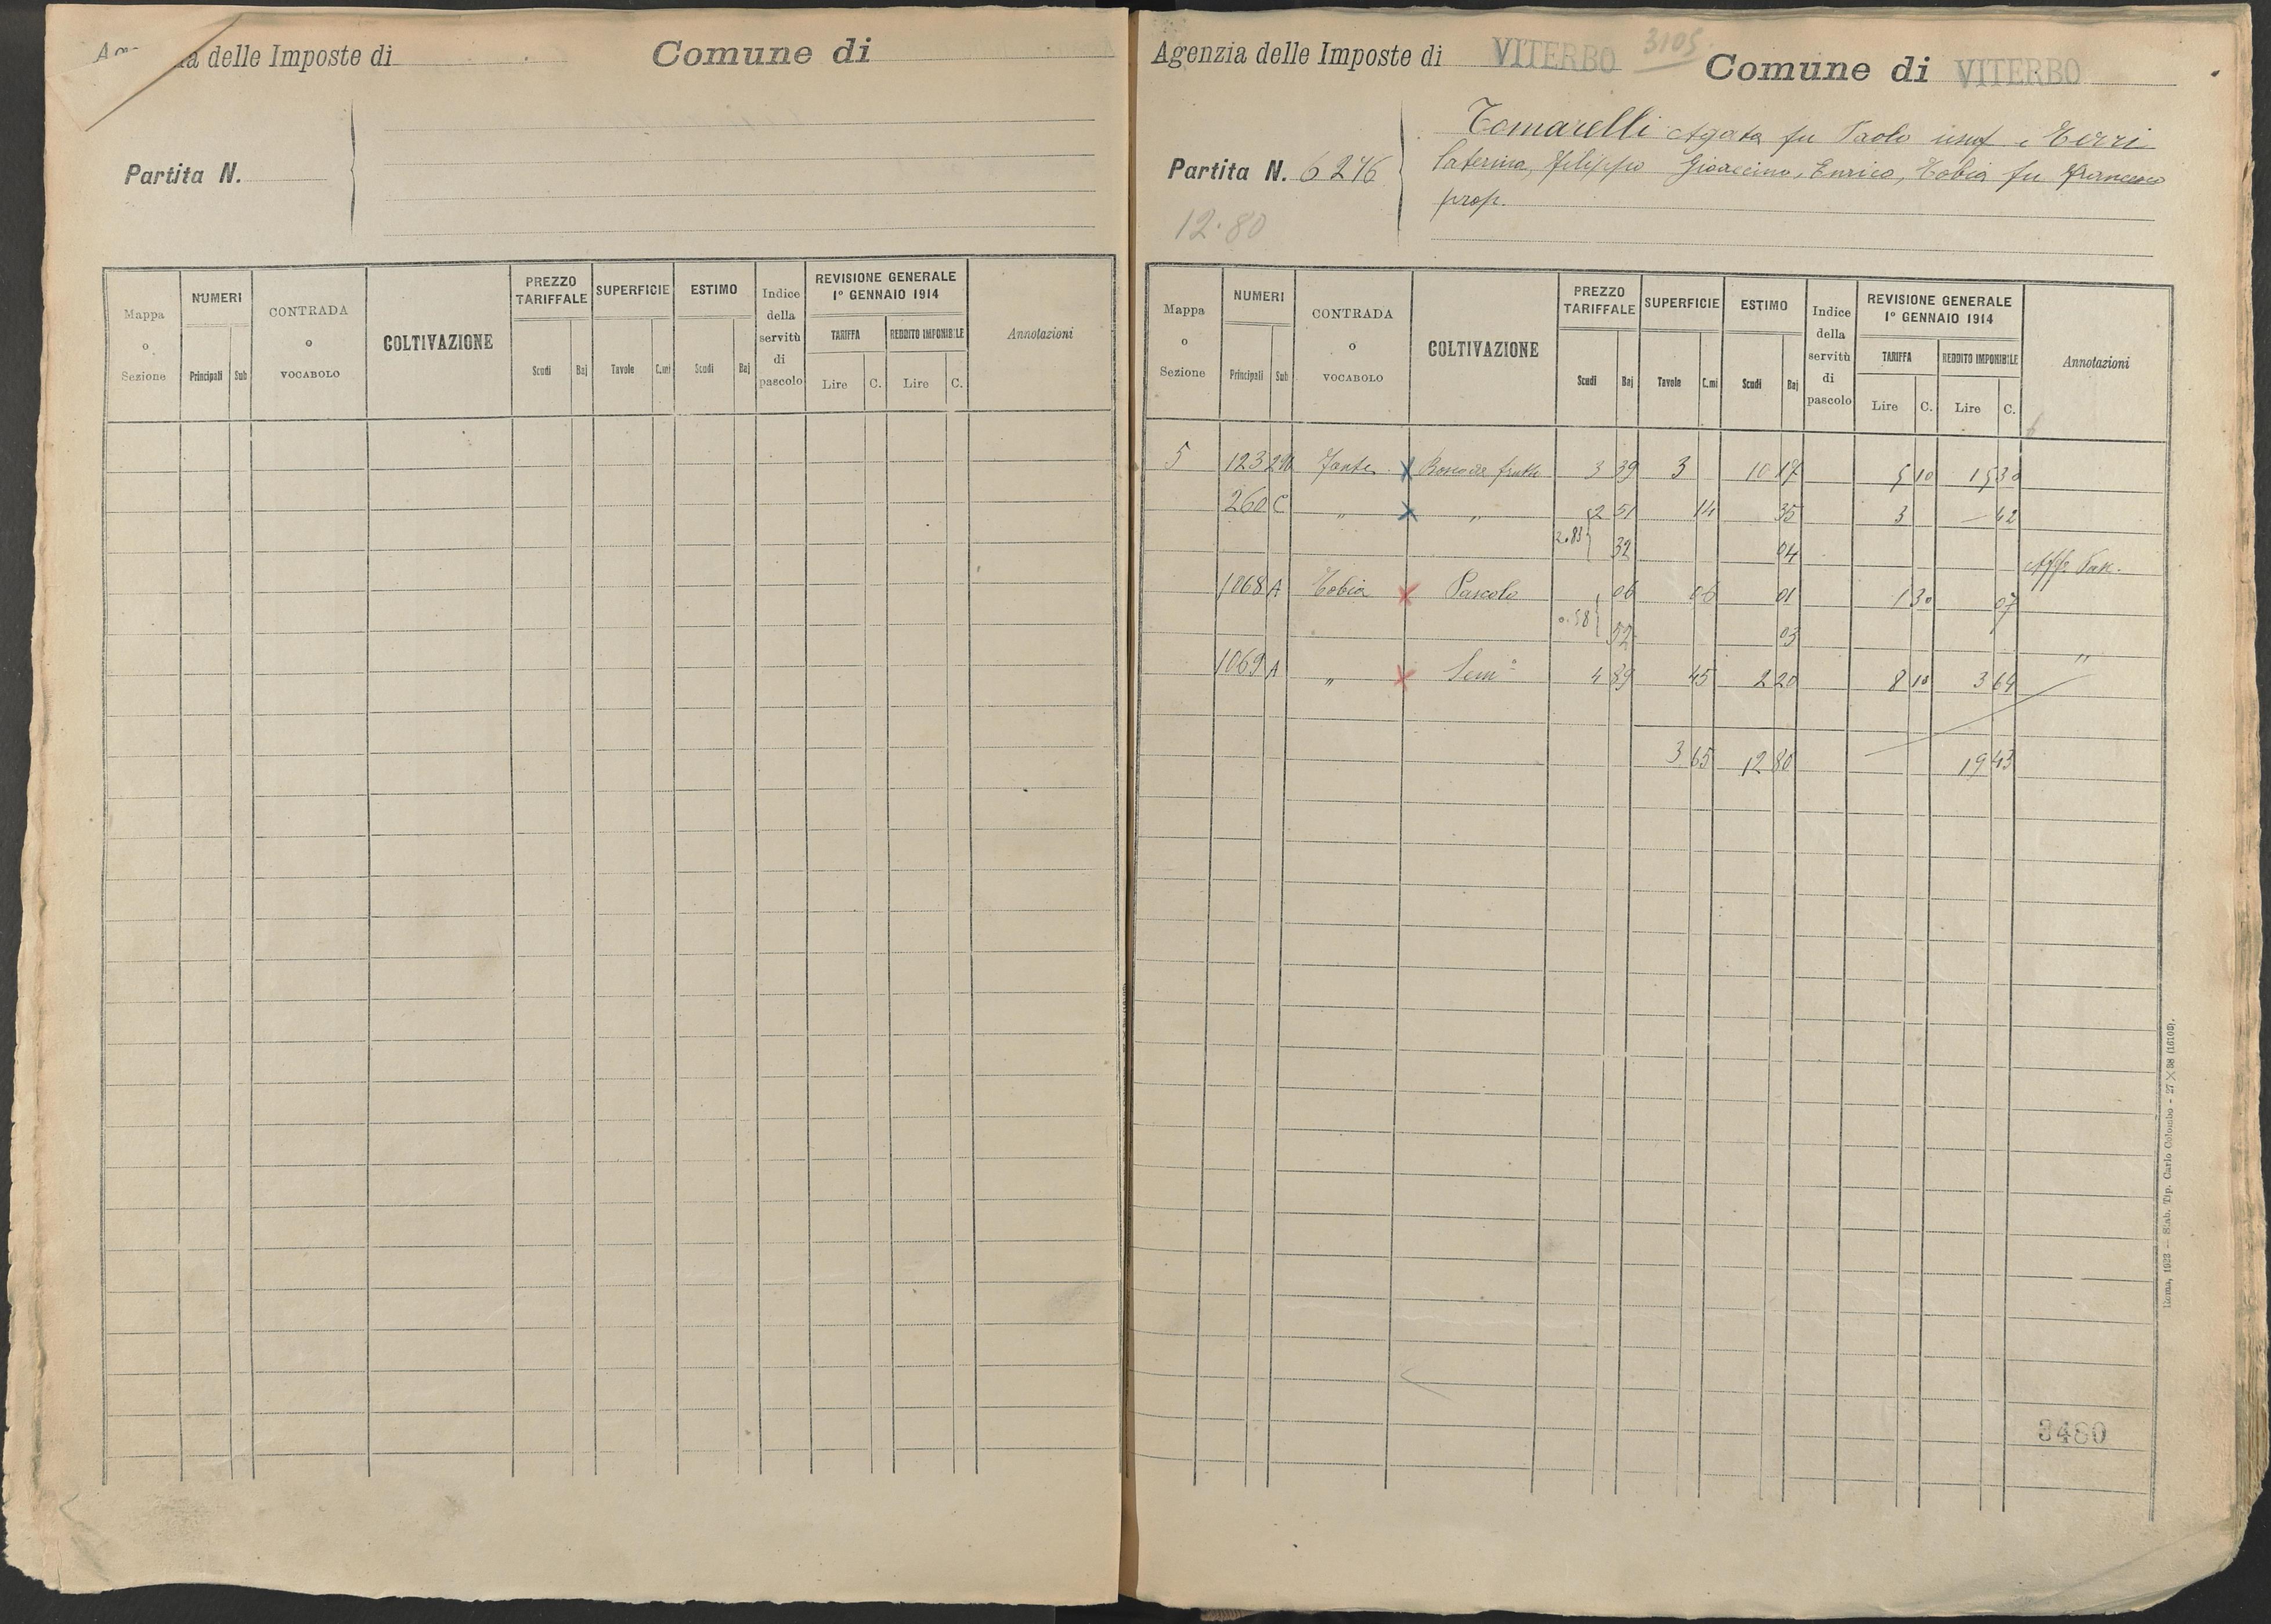 delle Imposte di
Comune di
Partita N.
Mappa o Sezione
NUMERI
Principali
Sub
CONTRADA o VOCABOLO
COLTIVAZIONE
PREZZO TARIFFALE
Scudi
Baj
SUPERFICIE
Tavole
C.mi
ESTIMO
Scudi
Baj
Indice della servitù di pascolo
REVISIONE GENERALE 1° GENNAIO 1914
TARIFFA
Lire
C.
REDDITO IMPONIBILE
Lire
C.
Annotazioni
Agenzia delle Imposte di VITERBO 3105
Comune di VITERBO
Tomarelli Agata fu Paolo usuf e Terri
Partita N. 6276
Caterina, Filippo Gioacchino, Enrico, Tobia fu Francesco
prop.
12.80
Mappa o Sezione
NUMERI
Principali
Sub
CONTRADA o VOCABOLO
COLTIVAZIONE
PREZZO TARIFFALE
Scudi
Baj
SUPERFICIE
Tavole
C.mi
ESTIMO
Scudi
Baj
Indice della servitù di pascolo
REVISIONE GENERALE 1° GENNAIO 1914
TARIFFA
Lire
C.
REDDITO IMPONIBILE
Lire
C.
Annotazioni
5 123 X 3 39 3 10 17 5 10 15 30
260 C " X " 2 51 14 35 3 — 42
2.83 32 04
1068 A Tobia X Pascolo , 06 06 01 1 30 07
0.58 52 03
1069 A " X Sem° 4 89 45 2 20 8 10 3 64 "
3 65 12 80 19 43
3480
Roma, 1923 — Stab. Tip. Carlo Colombo - 27 X 38 (16106).